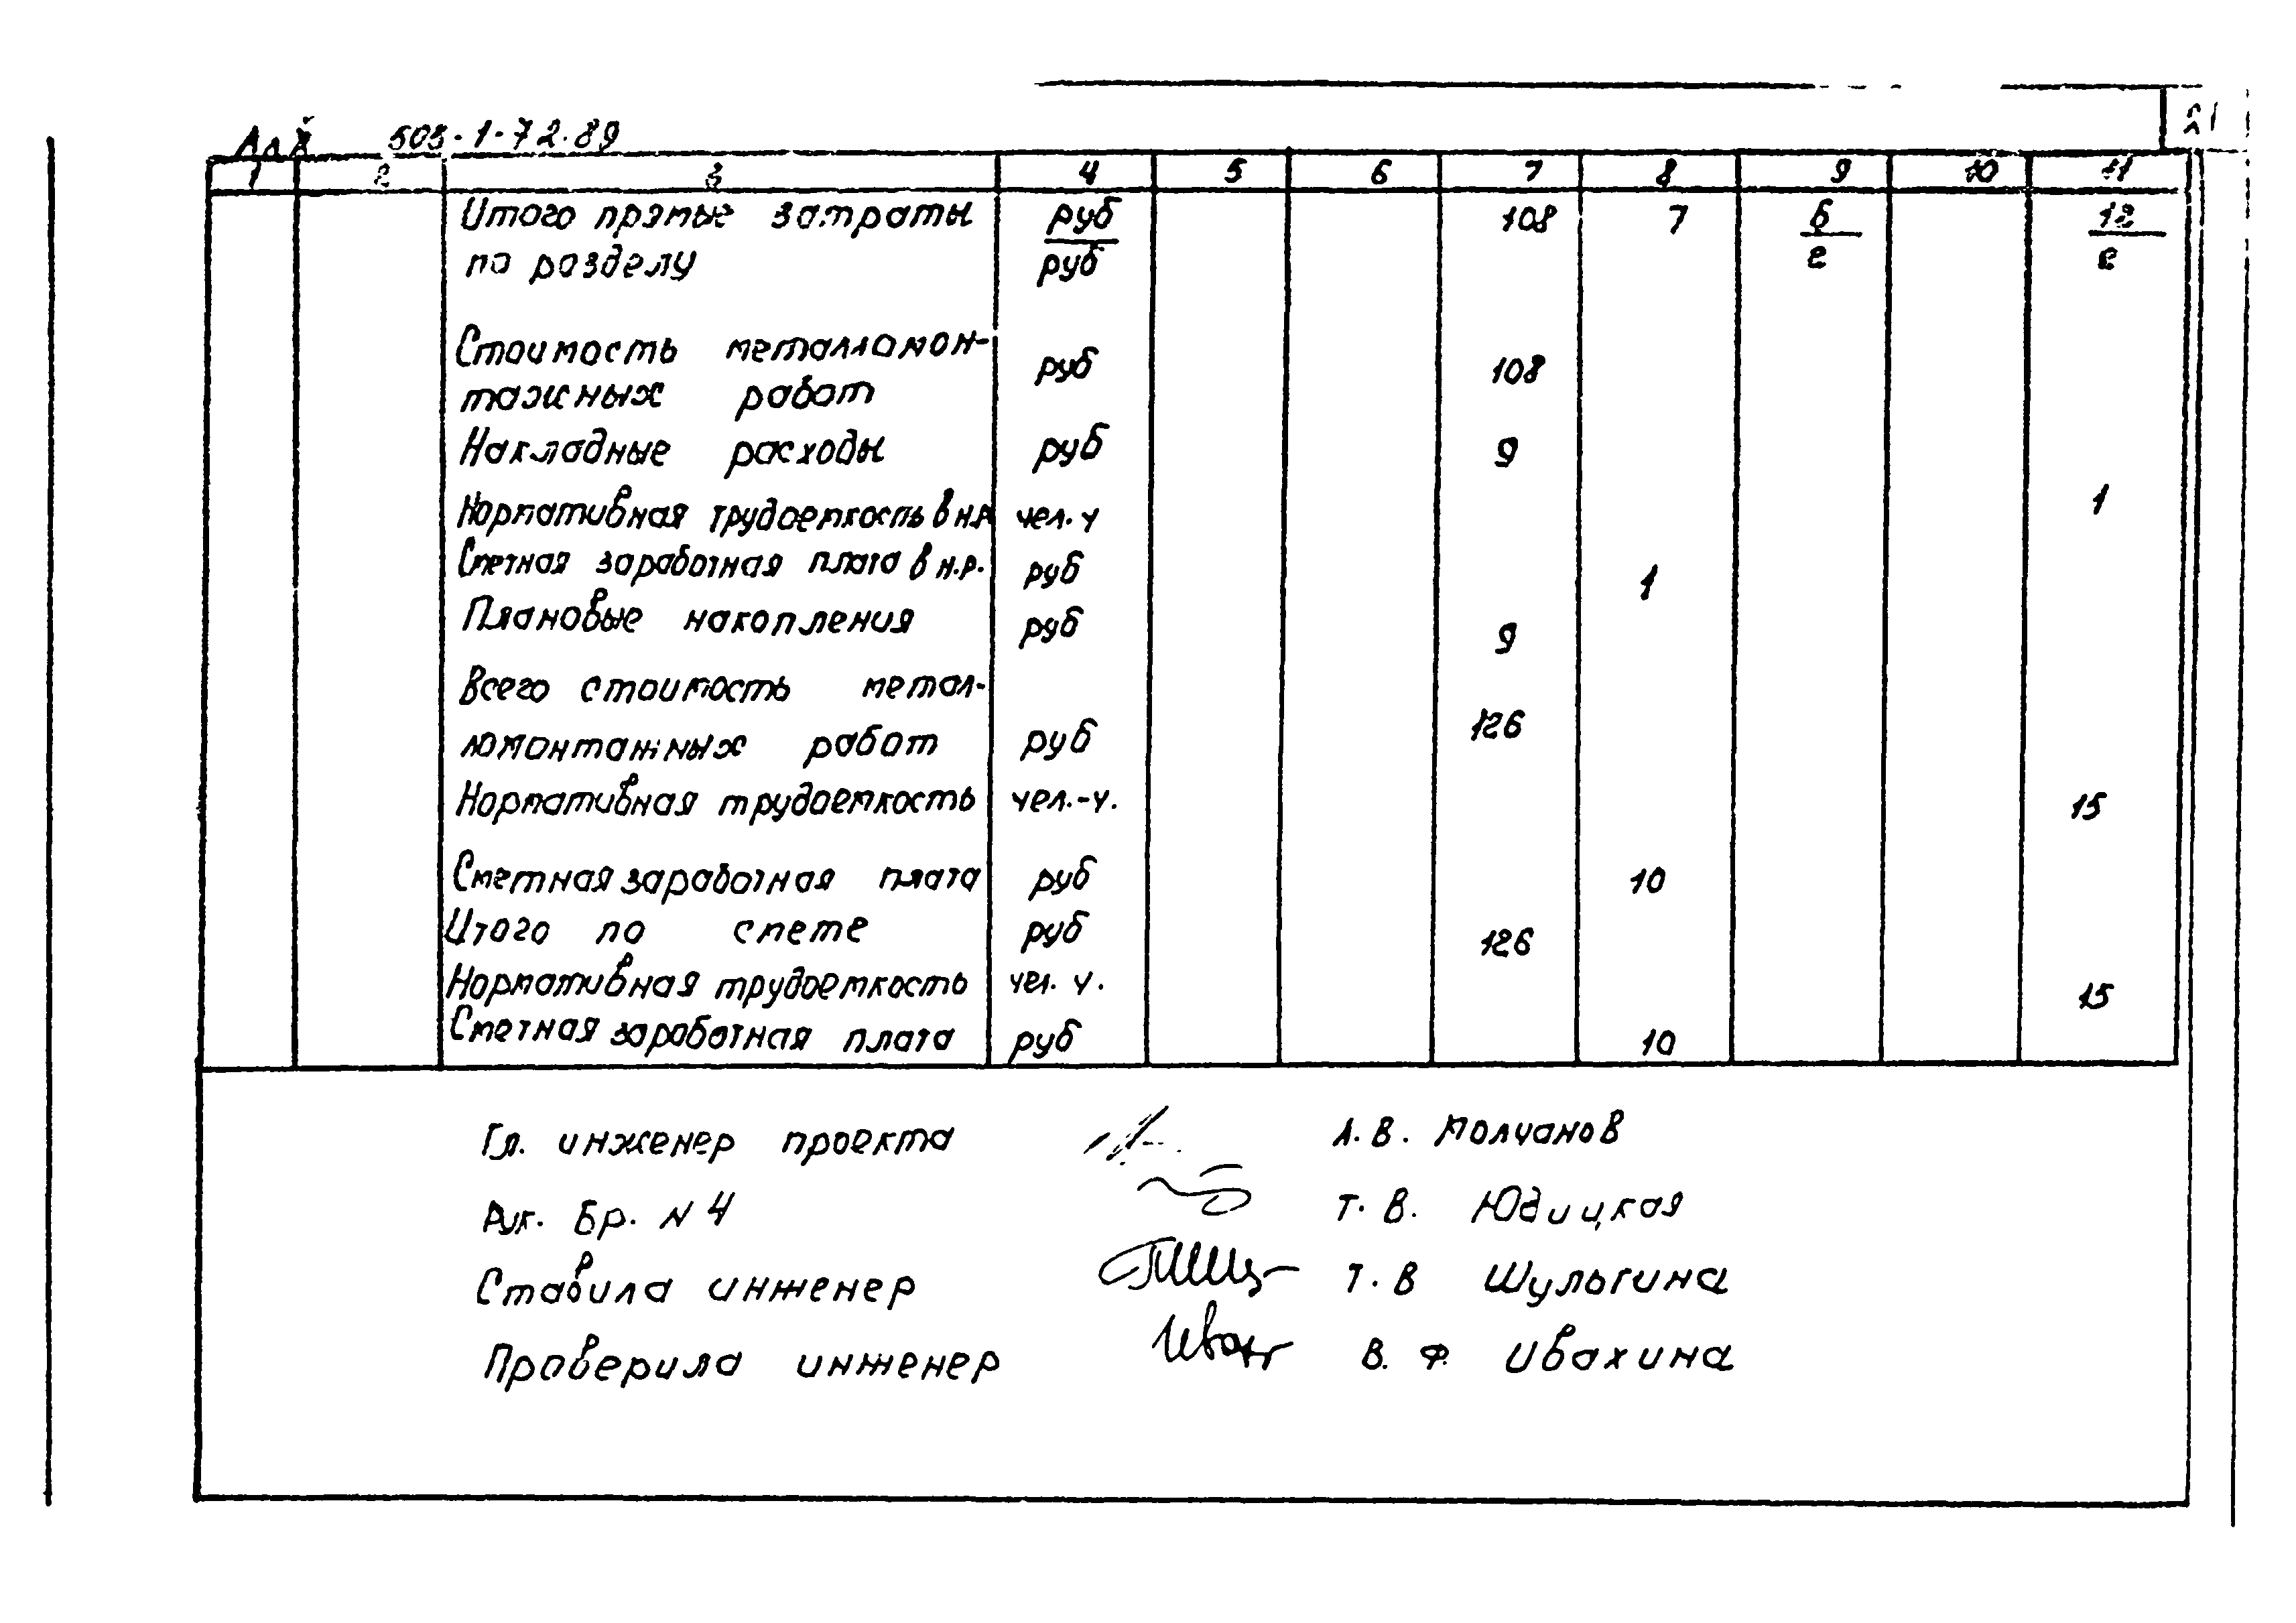 503-1-72.89
1 2 3 4 5 6 7 8 9 10 11
Итого прямые затраты руб 108 7 6 12
по разделу руб 2 2
Стоимость металломон-
тажных работ руб 108
Накладные расходы руб 9
Нормативная трудоемкость в н.р. чел.ч 1
Сметная заработная плата в н.р. руб 1
Плановые накопления руб 9
Всего стоимость метал-
ломонтажных работ руб 126
Нормативная трудоемкость чел.-ч. 15
Сметная заработная плата руб 10
Итого по смете руб 126
Нормативная трудоемкость чел. ч. 15
Сметная заработная плата руб 10
Гл. инженер проекта А.В. Молчанов
Рук. бр. N 4 Т.В. Юдицкая
Ставила инженер Т.В Шульгина
Проверила инженер В.Ф. Ивахина